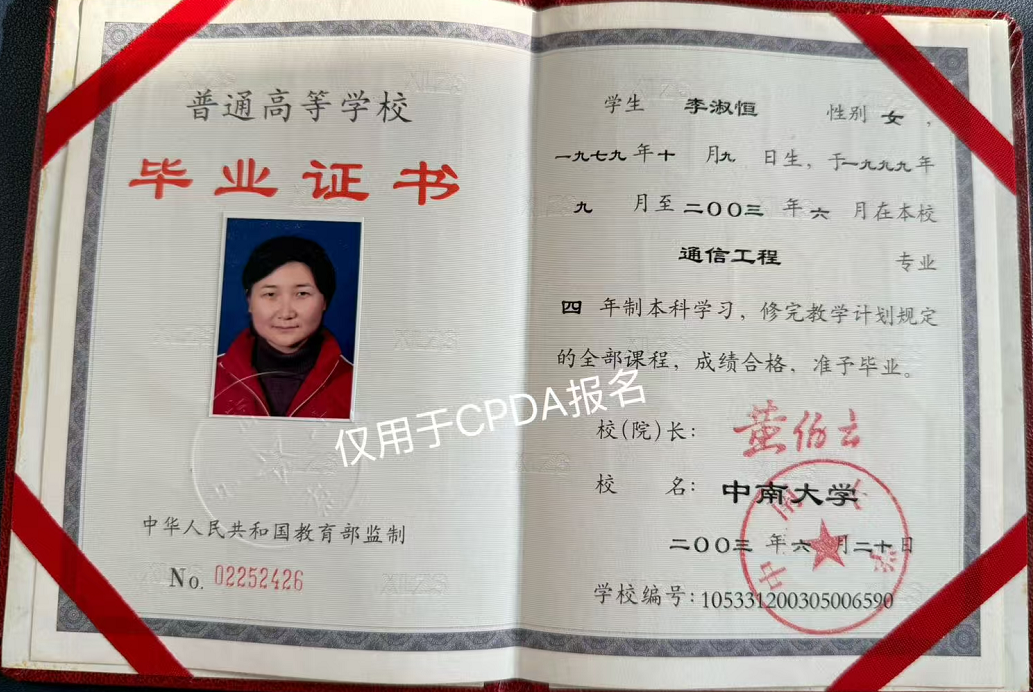 普通高等学校
毕业证书
中华人民共和国教育部监制
No. 02252426
学生 李淑恒 性别 女，
一九七九年十月九日生，于一九九九年
九月至二〇〇三年六月在本校
通信工程 专业
四年制本科学习，修完教学计划规定
的全部课程，成绩合格，准予毕业。
仅用于CPDA报名
校（院）长：黄伯云
校名：中南大学
二〇〇三年六月二十日
学校编号：105331200305006590